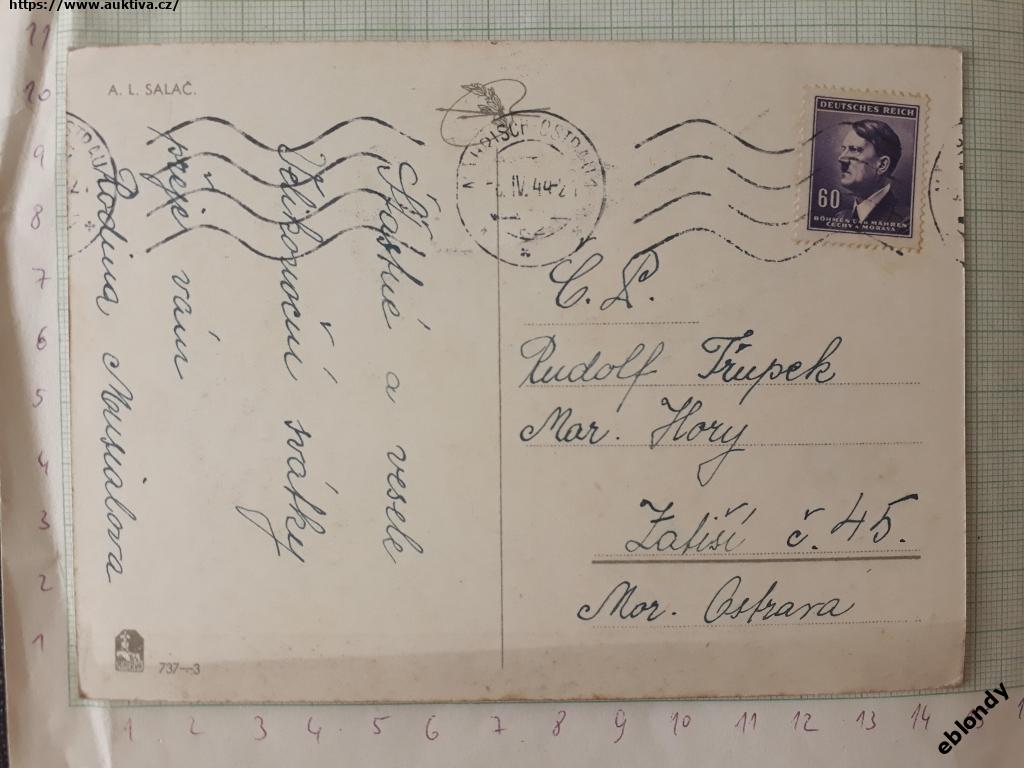 https://www.auktiva.cz/
A. L. SALAČ.
Šťastné a veselé
Velikonoční sváky
přeje vám
Rodina Musialova
IV. 44-2
DEUTSCHES REICH
60
BÖHMEN UND MÄHREN
ČECHY A MORAVA
C. P.
Rudolf Třupek
Mar. Hory
Zatiší č. 45.
Mor. Ostrava
737-3
11
10
9
8
7
6
5
4
3
2
1
1 2 3 4 5 6 7 8 9 10 11 12 13 14
eblondy